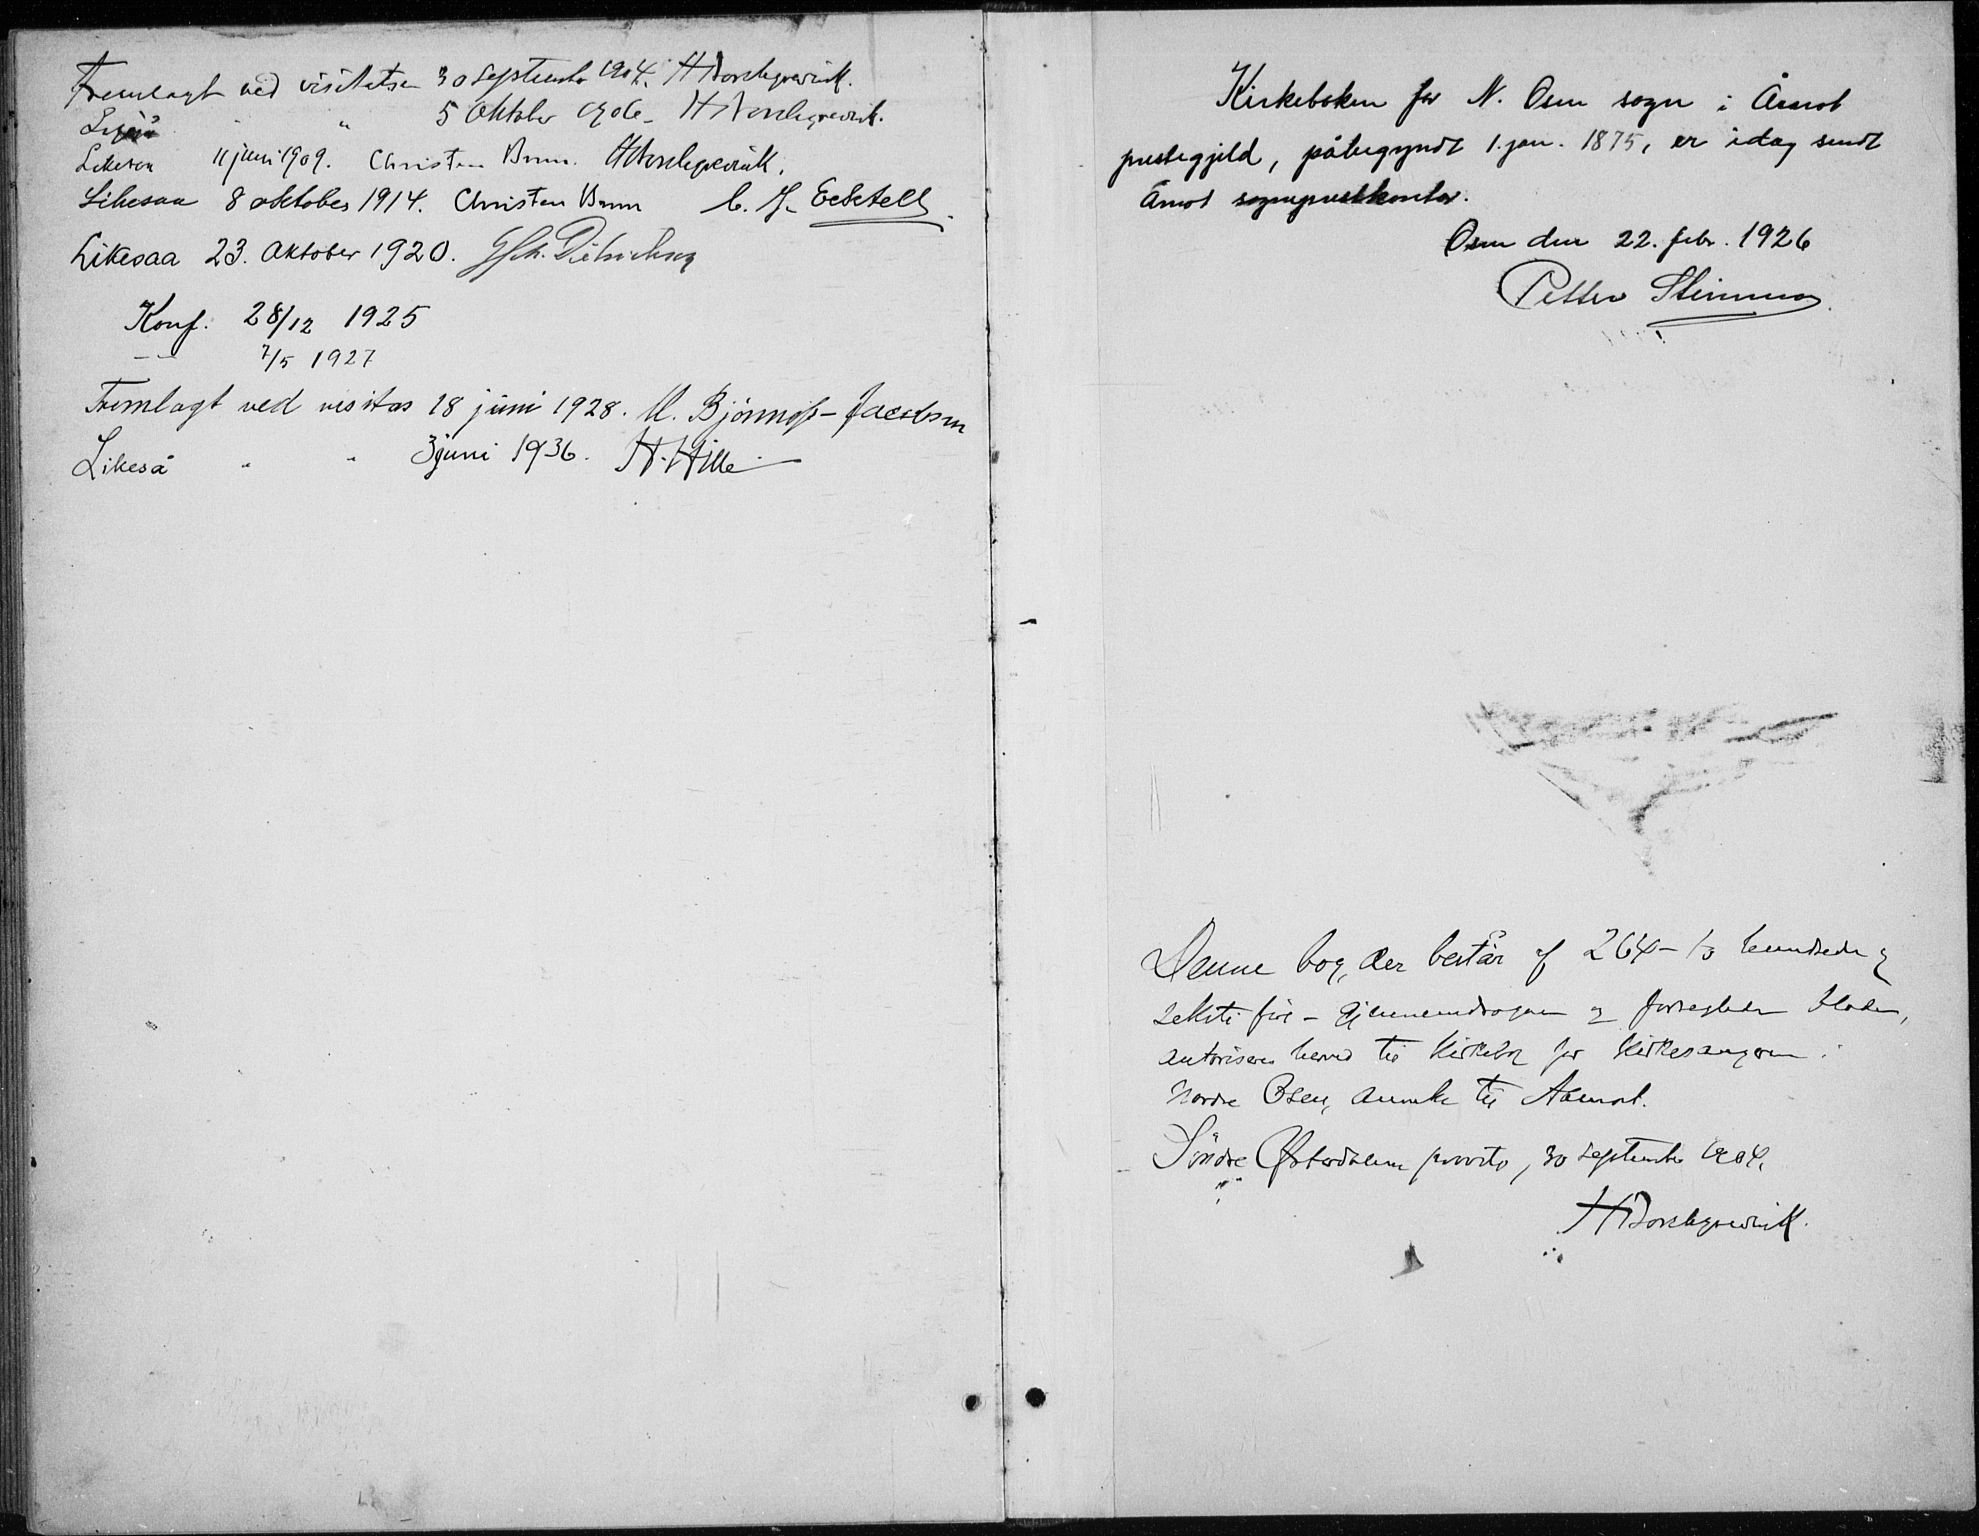 Fremlagt ved visitatsen 30 September 1904. H Borchgrevink.
" " 5 Oktober 1906 H Borchgrevink.
Likesaa 11 juni 1909. Christen Brun. H Borchgrevink.
Likesaa 8 oktober 1914. Christen Brun C. J. Ecktell
Likesaa 23. Oktober 1920. G Sch. Dietrichson
Konf. 28/12 1925
— " — 7/5 1927
Fremlagt ved visitas 18 juni 1928. M. Bjønness-Jacobsen
Likeså " " 3 juni 1936. H. Hille
Kirkeboken for N. Osen sogn i Åmot
prestegjeld, påbegyndt 1. jan. 1875, er idag sendt
Åmot sogneprestkontor.
Osen den 22. febr. 1926
Petter Stenmoen
Denne bog, der består af 264 – to hundrede og
seksti fire – gjennemdragne og forseglede blade,
autoriseres herved til kirkebog for kirkesangeren i
Nordre Osen, anneks til Aamot.
Söndre Østerdalens provsti, 30 September 1904.
H Borchgrevink.